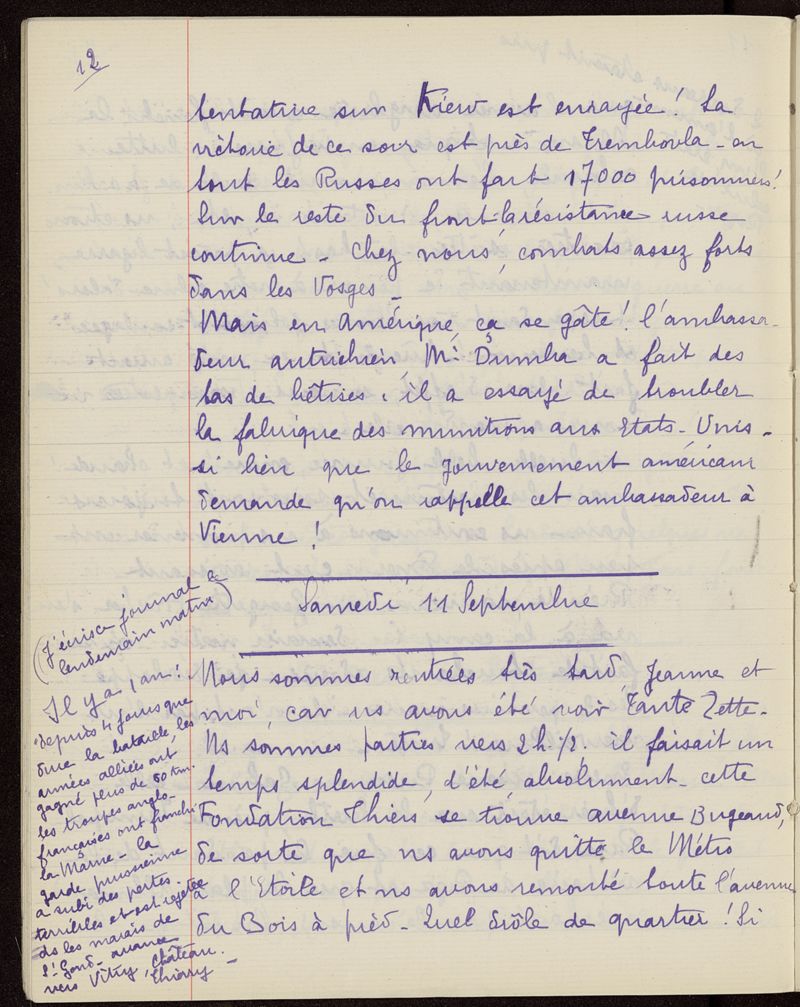 12
tentative sur Kiew est enrayée! La
victoire de ce soir est près de Trembovla - en
tout les Russes ont fait 17000 prisonniers!
Sur le reste du front la résistance russe
continue - Chez nous, combats assez forts
dans les Vosges -
Mais en Amérique, ça se gâte! l'ambassa-
deur autrichien, Mr Dumba a fait des
tas de bêtises : il a essayé de troubler
la fabrique des munitions aux Etats-Unis -
si bien que le Gouvernement américain
demande qu'on rappelle cet ambassadeur à
Vienne!
Samedi 11 Septembre
(J'écris ce journal le
lendemain matin)
Il y a 1 an!
"depuis 4 jours que
dure la bataille, les
armées alliées ont
gagné plus de 60 km.
les troupes anglo-
françaises ont franchi
la Marne - la
garde prussienne
a subi des pertes
terribles et est rejetée
ds les marais de
St Gond - avance
vers Vitry, Château
Thierry -
Nous sommes rentrées très tard, Jeanne et
moi, car ns avons été voir Tante Zette -
Ns sommes parties vers 2h 1/2, il faisait un
temps splendide, d'été, absolument - cette
Fondation Thiers se trouve avenue Bugeaud,
de sorte que ns avons quitté le Métro
à l'Etoile et ns avons remonté toute l'avenue
du Bois à pied - Quel drôle de quartier! Si